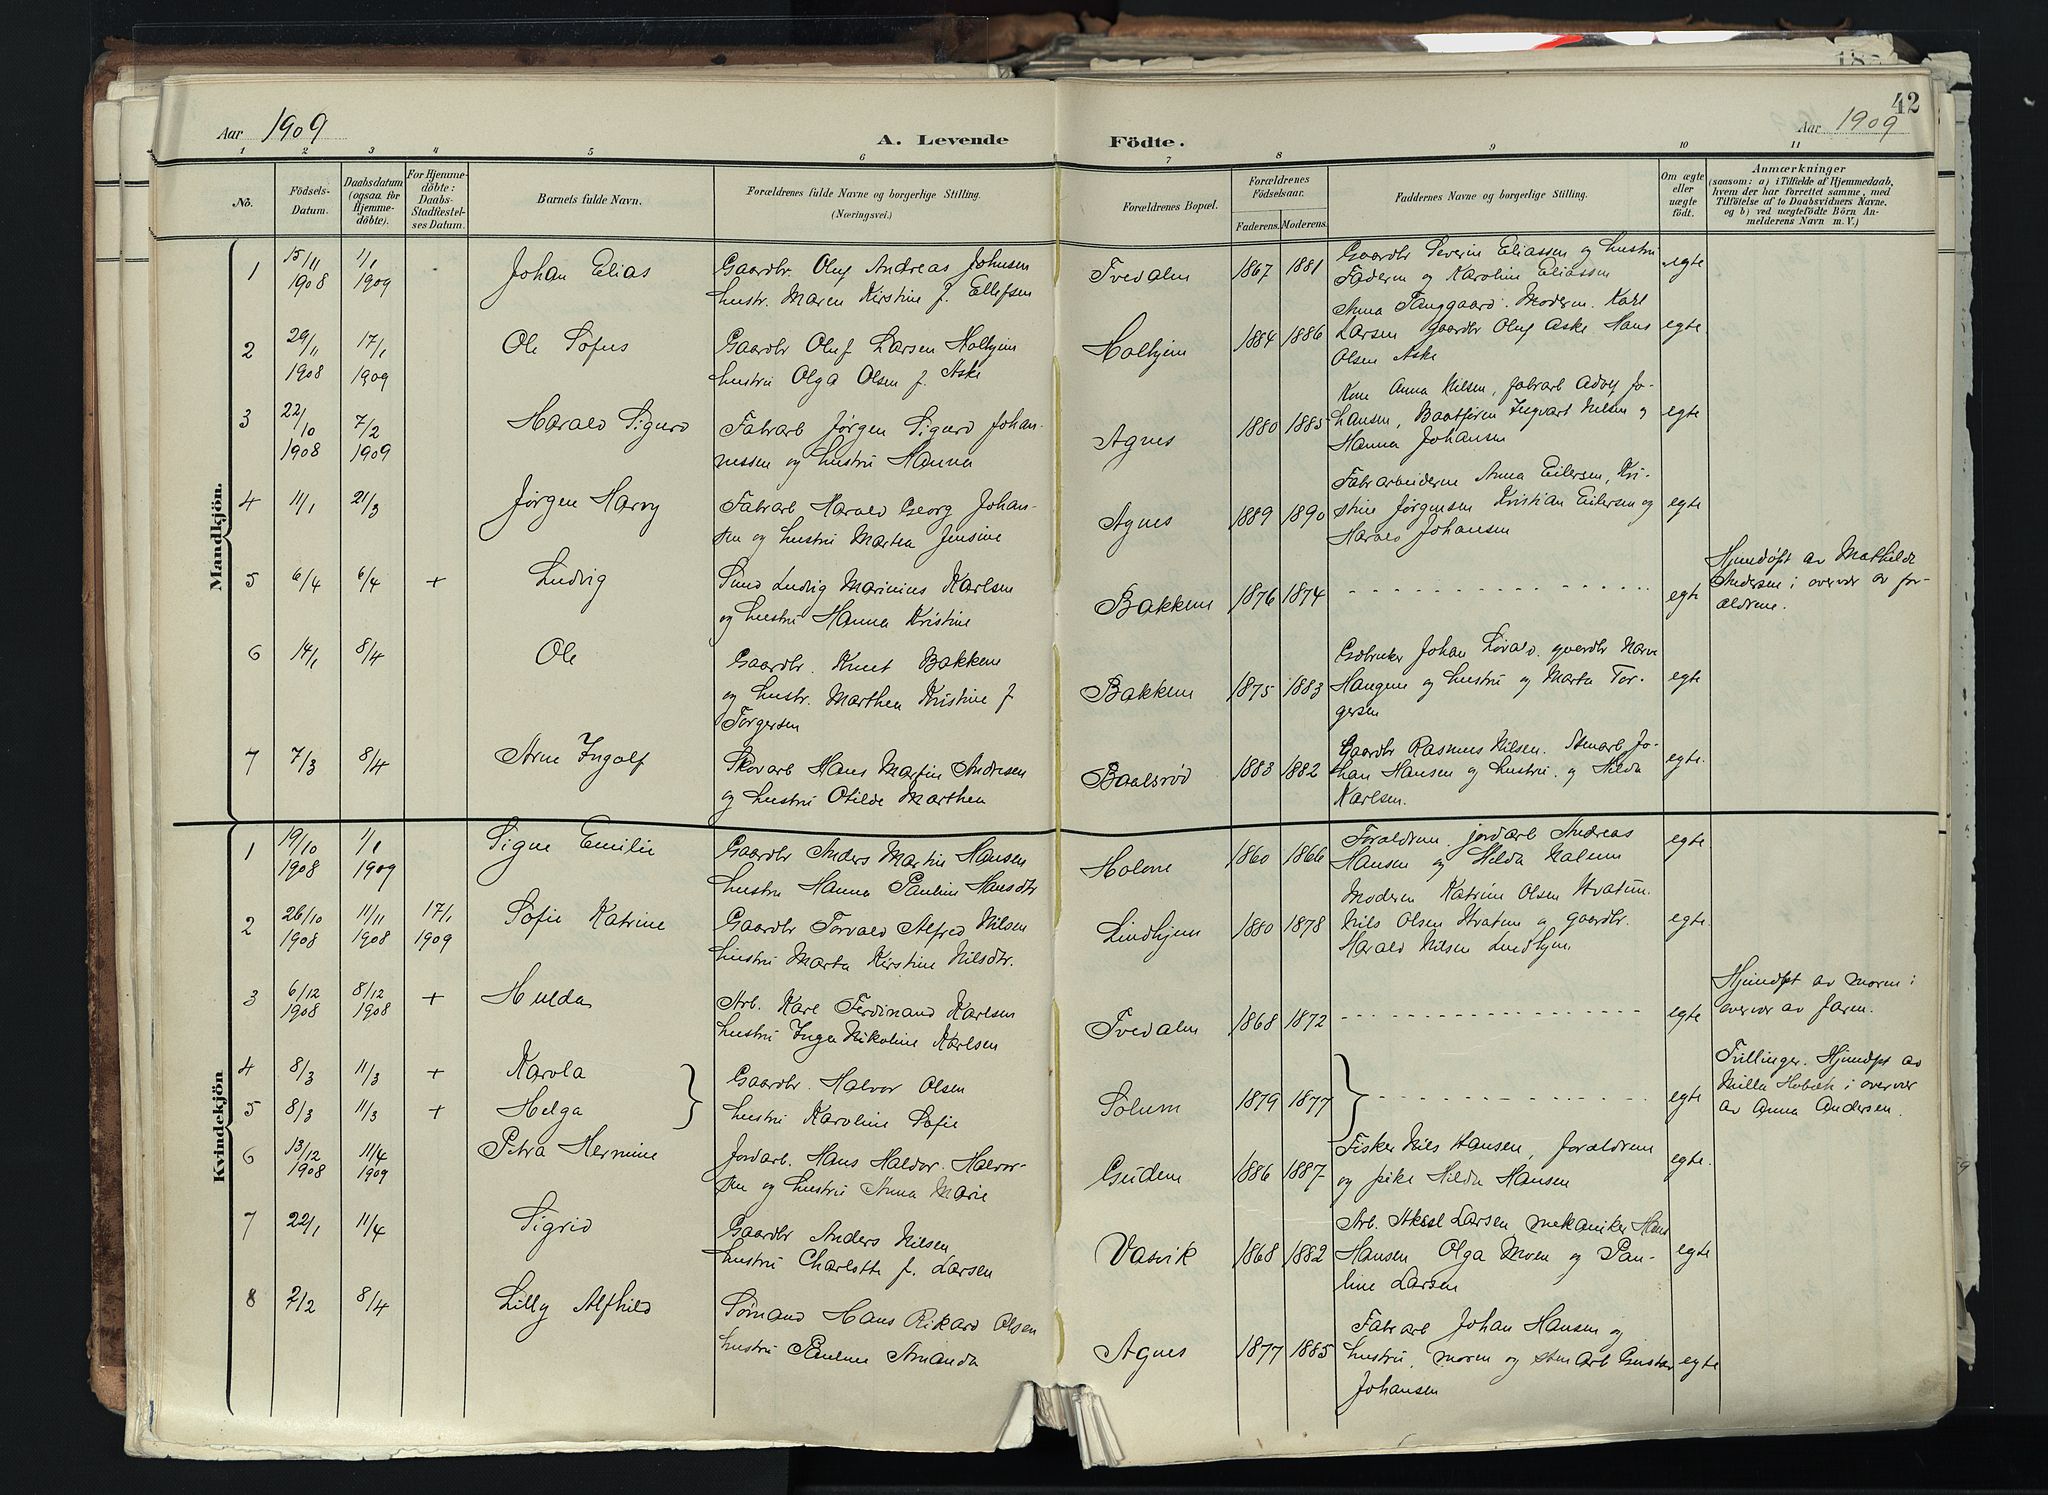 42
Aar 1909
A. Levende Födte.
Aar 1909
1 2 3 4 5 6 7 8 9 10 11
No.
Födsels-Datum.
Daabsdatum (ogsaa for Hjemmedöbte).
For Hjemmedöbte: Daabs-Stadfæstelses Datum.
Barnets fulde Navn.
Forældrenes fulde Navne og borgerlige Stilling. (Næringsvei.)
Forældrenes Bopæl.
Forældrenes Födselsaar.
Faderens. Moderens.
Faddernes Navne og borgerlige Stilling.
Om ægte eller uægte födt.
Anmærkninger
(saasom: a) i Tilfælde af Hjemmedaab,
hvem der har forrettet samme, med
Tilföielse af to Daabsvidners Navne.
og b) ved uægtefödte Börn Anmelderens Navn m. V.)
Mandkjön.
1 15/11 1908 1/1 1909 Johan Elias
Gaardbr. Oluf Andreas Johnsen
hustr. Maren Kirstine f. Ellefsen
Tvedalen 1867 1881
Gaardbr Severin Eliassen og hustru
Faderen og Karoline Eliassen
egte
2 29/11 1908 17/1 1909 Ole Sofus
Gaardbr Oluf Larsen Holhjem
hustru Olga Olsen f. Aske
Holhjem 1884 1886
Anna Tanggaard. Moderen. Karl
Larsen gaardbr Oluf Aske Hans
Olsen Aske
egte
3 22/10 1908 7/2 1909 Harald Sigurd
Fabrarb Jørgen Sigurd Johan-
nessen og hustru Hanna
Agnes 1880 1885
Kone Anna Nilsen, fabrarb Adolf Jo-
hansen, Baatfører Ingvart Nilsen og
Hanna Johansen
egte
4 11/1 21/3 Jørgen Harry
Fabrarb Harald Georg Johan-
sen og hustru Martha Jensine
Agnes 1889 1890
Fabrarbeiderne Anna Eilersen, Kri-
stine Jørgensen Kristian Eilersen og
Harald Johansen
egte
5 6/4 6/4 + Ludvig
Smed Ludvig Marinius Karlsen
og hustru Hanna Kristine
Bakkene 1876 1874
egte
Hjemdøpt av Mathilde
Andersen i overvær av for-
ældrene.
6 14/1 8/4 Ole
Gaardbr. Knut Bakkene
og hustr. Marthea Kristine f
Torgersen
Bakkene 1875 1883
Gdbruker Johan gaardbr
Haugene og hustru og Marta Tor-
gersen
egte
7 7/3 8/4 Arne Ingolf
Skovarb Hans Martin Andresen
og hustru Otilde Marthea
Baalsrød 1883 1882
Gaardbr Rasmus Nilsen. Stenarb Jo-
han Hansen og hustru. og Hilda
Karlsen.
egte.
Kvindekjön
1 19/10 1908 1/1 1909 Signe Emilie
Gaardbr Anders Martin Hansen
hustru Hanna Pauline Hansdtr
Holene 1860 1866
Forældrene. jordarb Andreas
Hansen og Hilda Nalum
egte
2 26/10 1908 11/11 1908 17/1 1909 Sofie Katrine
Gaardbr Torvald Alfred Nilsen
hustru Marta Kirstine Nilsdtr.
Lindhjem 1880 1878
Moderen Katrine Olsen Hvatum.
Nils Olsen Hvatum og gaardbr.
Harald Nilsen Lindhjem
egte.
3 6/12 1908 8/12 1908 + Hulda
Arb. Karl Ferdinand Karlsen
hustru Inga Nikoline Karlsen
Tvedalen 1868 1872
egte
Hjemdøpt av moren i
overvær av faren.
4 8/3 11/3 + Karola
5 8/3 11/3 + Helga
Gaardbr. Halvor Olsen
hustru Karoline Sofie
Solum 1879 1877
egte
Tvillinger. Hjemdøpt av
Milla i overvær
av Anna Andersen.
6 13/12 1908 11/4 1909 Petra Hermine
Jordarb. Hans Haldor Halvor-
sen og hustru Anna Marie
Guden 1886 1887
Fisker Nils Hansen, forældrene
og pike Hilda Hansen
egte.
7 22/1 11/4 Sigrid
Gaardbr Anders Nilsen
hustru Charlotte f. Larsen
Vasvik 1868 1882
Arb. Aksel Larsen mekaniker Hans
Hansen Olga Moen og Pau-
line Larsen
egte
8 2/2 8/4 Lilly Alfhild
Sømand Hans Rikard Olsen
hustru Pauline Amanda
Agnes 1877 1885
Fabrarb Johan Hansen og
hustru, moren og stenarb Gustav
Johansen
egte